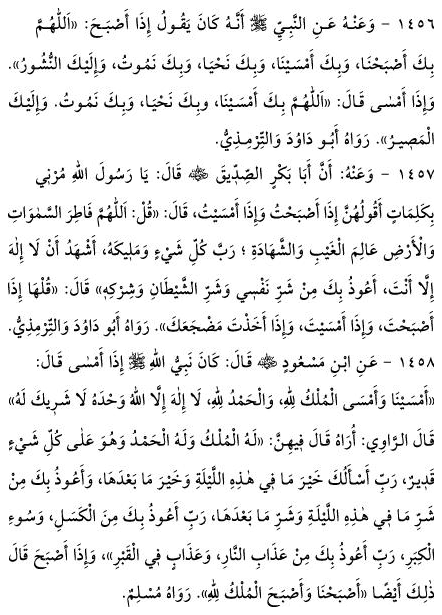 ١٤٥٦ - وَعَنْهُ عَنِ النَّبِيِّ ﷺ أَنَّهُ كَانَ يَقُولُ إِذَا أَصْبَحَ: «اَللَّهُمَّ
بِكَ أَصْبَحْنَا، وَبِكَ أَمْسَيْنَا، وَبِكَ نَحْيَا، وَبِكَ نَمُوتُ، وَإِلَيْكَ النُّشُورُ».
وَإِذَا أَمْسٰى قَالَ: «اَللَّهُمَّ بِكَ أَمْسَيْنَا، وبِكَ نَحْيَا، وَبِكَ نَمُوتُ. وَإِلَيْكَ
الْمَصِيرُ». رَوَاهُ أَبُو دَاوُدَ وَالتِّرْمِذِيُّ.
١٤٥٧ - وَعَنْهُ: أَنَّ أَبَا بَكْرٍ الصِّدِّيقَ ﷺ قَالَ: يَا رَسُولَ اللهِ مُرْنِي
بِكَلِمَاتٍ أَقُولُهُنَّ إِذَا أَصْبَحْتُ وَإِذَا أَمْسَيْتُ، قَالَ: «قُلْ: اَللَّهُمَّ فَاطِرَ السَّمٰوَاتِ
وَالْأَرْضِ عَالِمَ الْغَيْبِ وَالشَّهَادَةِ ؛ رَبَّ كُلِّ شَيْءٍ وَمَلِيكَهُ، أَشْهَدُ أَنْ لَا إِلٰهَ
إِلَّا أَنْتَ، أَعُوذُ بِكَ مِنْ شَرِّ نَفْسِي وَشَرِّ الشَّيْطَانِ وَشِرْكِهِ» قَالَ: «قُلْهَا إِذَا
أَصْبَحْتَ، وَإِذَا أَمْسَيْتَ، وَإِذَا أَخَذْتَ مَضْجَعَكَ». رَوَاهُ أَبُو دَاوُدَ وَالتِّرْمِذِيُّ.
١٤٥٨ - عَنِ ابْنِ مَسْعُودٍ ﷺ قَالَ: كَانَ نَبِيُّ اللهِ ﷺ إِذَا أَمْسٰى قَالَ:
«أَمْسَيْنَا وَأَمْسَى الْمُلْكُ لِلّٰهِ، وَالْحَمْدُ لِلّٰهِ، لَا إِلٰهَ إِلَّا اللهُ وَحْدَهُ لَا شَرِيكَ لَهُ»
قَالَ الرَّاوِي: أُرَاهُ قَالَ فِيهِنَّ: «لَهُ الْمُلْكُ وَلَهُ الْحَمْدُ وَهُوَ عَلٰى كُلِّ شَيْءٍ
قَدِيرٌ، رَبِّ أَسْأَلُكَ خَيْرَ مَا فِي هٰذِهِ اللَّيْلَةِ وَخَيْرَ مَا بَعْدَهَا، وَأَعُوذُ بِكَ مِنْ
شَرِّ مَا فِي هٰذِهِ اللَّيْلَةِ وَشَرِّ مَا بَعْدَهَا، رَبِّ أَعُوذُ بِكَ مِنَ الْكَسَلِ، وَسُوءِ
الْكِبَرِ، رَبِّ أَعُوذُ بِكَ مِنْ عَذَابِ النَّارِ، وَعَذَابٍ فِي الْقَبْرِ»، وَإِذَا أَصْبَحَ قَالَ
ذٰلِكَ أَيْضًا «أَصْبَحْنَا وَأَصْبَحَ الْمُلْكُ لِلّٰهِ». رَوَاهُ مُسْلِمٌ.